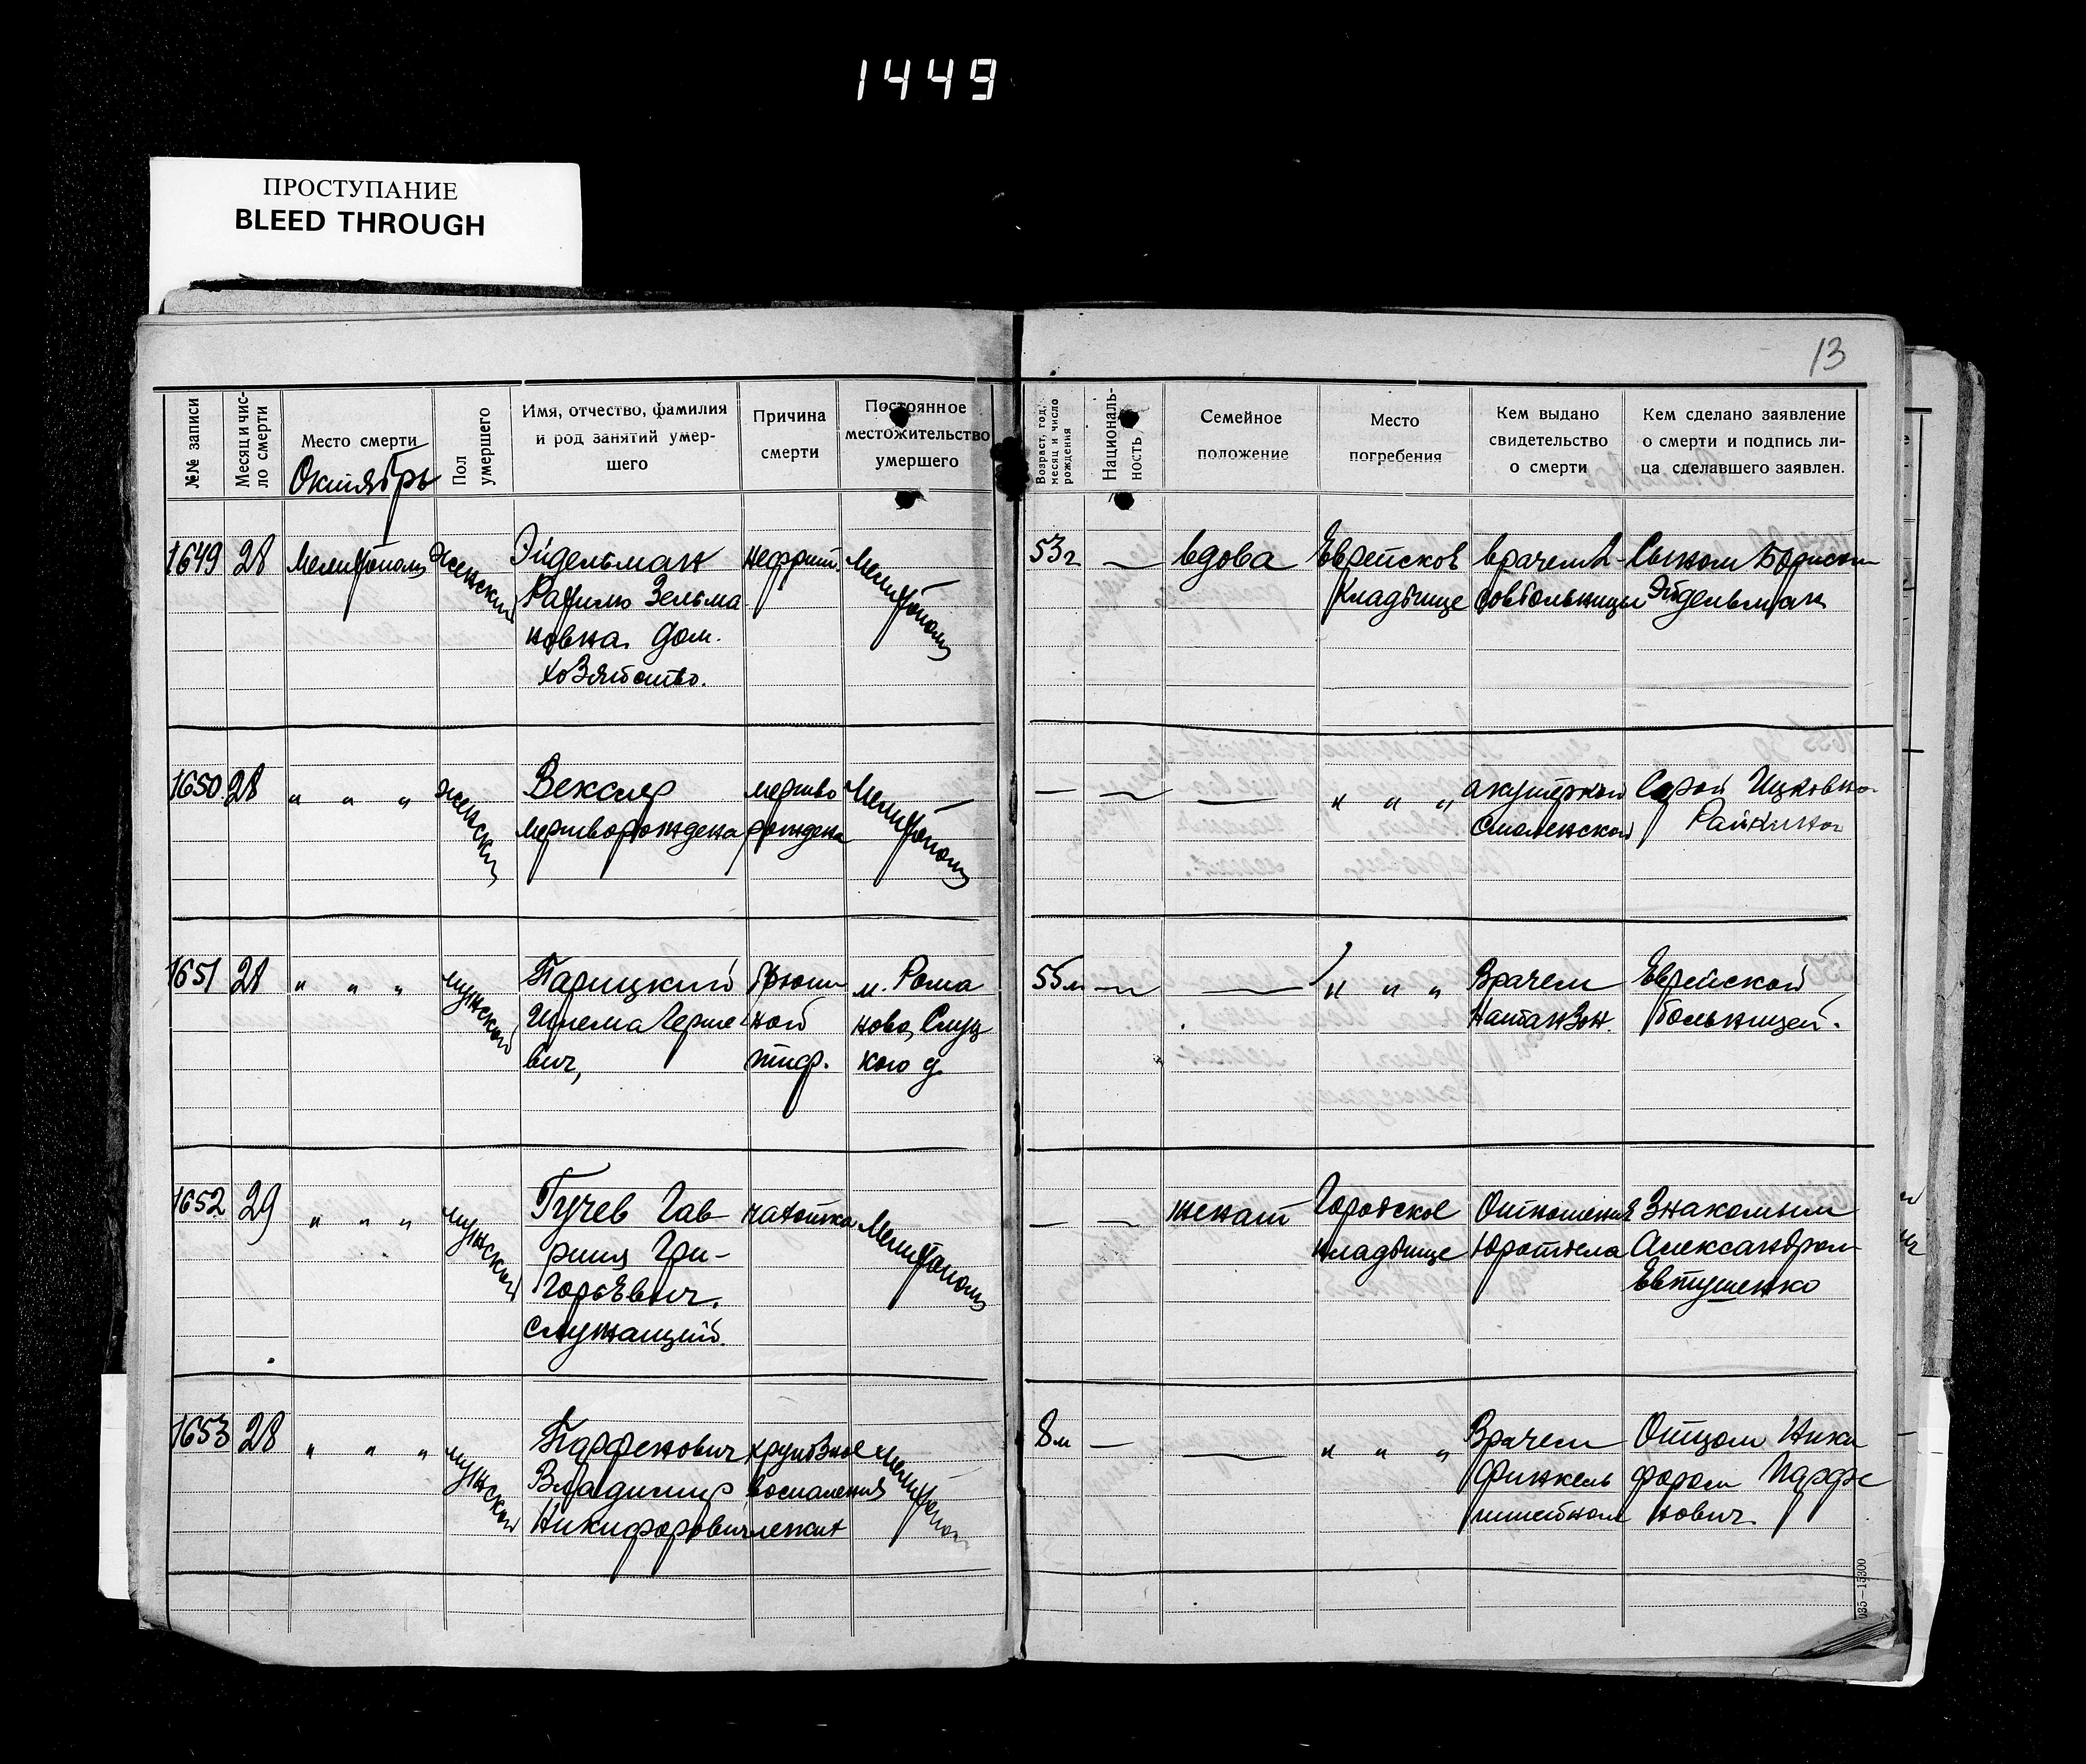 1449
ПРОСТУПАНИЕ
BLEED THROUGH
13
№№ записи
Месяц и чис-
ло смерти
Место смерти
Октябрь
Пол
умершего
Имя, отчество, фамилия
и род занятий умер-
шего
Причина
смерти
Постоянное
местожительство
умершего
Возраст, год,
месяц и число
рождения
Националь-
ность
Семейное
положение
Место
погребения
Кем выдано
свидетельство
о смерти
Кем сделано заявление
о смерти и подпись ли-
ца сделавшего заявлен.
1649
28
Мелитополь
Женский
Эйдельман
Зельма
новна Дом.
хозяйство.
нефрит.
Мелитополь
53г
—
вдова
Еврейское
Кладбище
врачем 2-
совбольницы
Сыном Борисом
Эйдельман
1650
28
" " "
женский
Векслер
мертворождена
мертво
рождена
Мелитополь
—
—
—
" " "
акушеркой
Смоленской
Сарой Ицковно
Райкиной
1651
28
" " "
мужской
Парицкий
вич,
брюш
ной
тиф.
м. Рома
ново, Слуц
кого у.
55л
—
—
" " "
Врачем
Натанзон.
Еврейской
больницей.
1652
29
" " "
мужской
Гучев Гав
риил Гри-
горьевич.
служащий.
чахотка
Мелитополь
—
—
женат
Городское
кладбище
Отношение
Юротдела
Знакомым
Александром
Евтушенко
1653
28
" " "
мужской
Парфенович
Владимир
Никифорович
крупозное
воспаления
легких
Мелитополь
8м
—
—
" " "
Врачем
Финкель
штейном
Отцом Ники
фором Парфе
нович.
035—15300